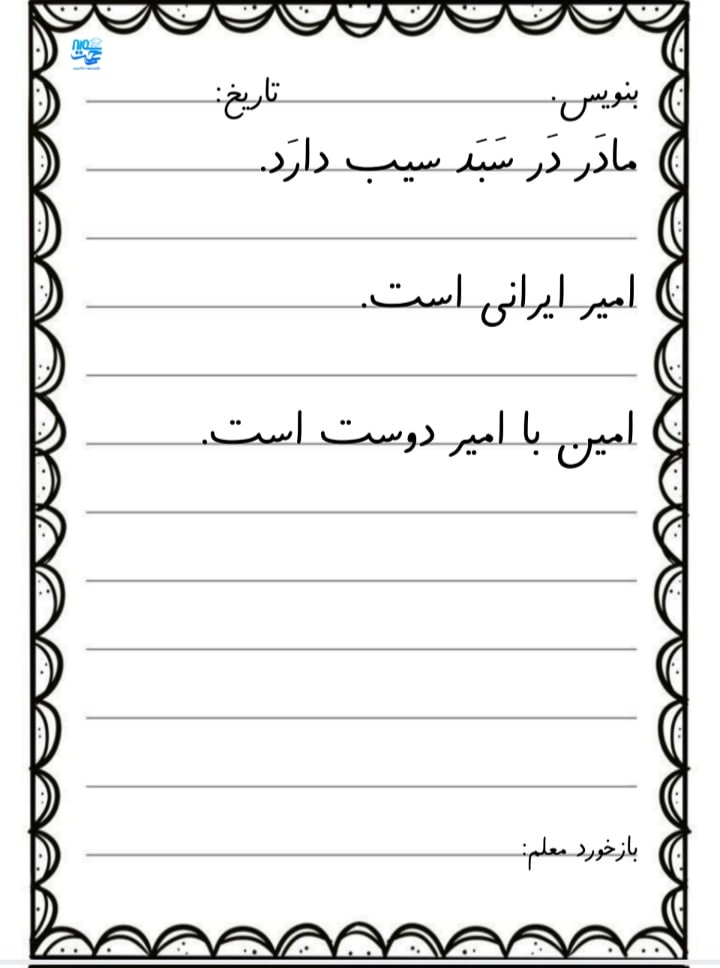 بنویس. تاریخ:
مادَر دَر سَبَد سیب دارَد.
امیر ایرانی است.
امین با امیر دوست است.
بازخورد معلم: